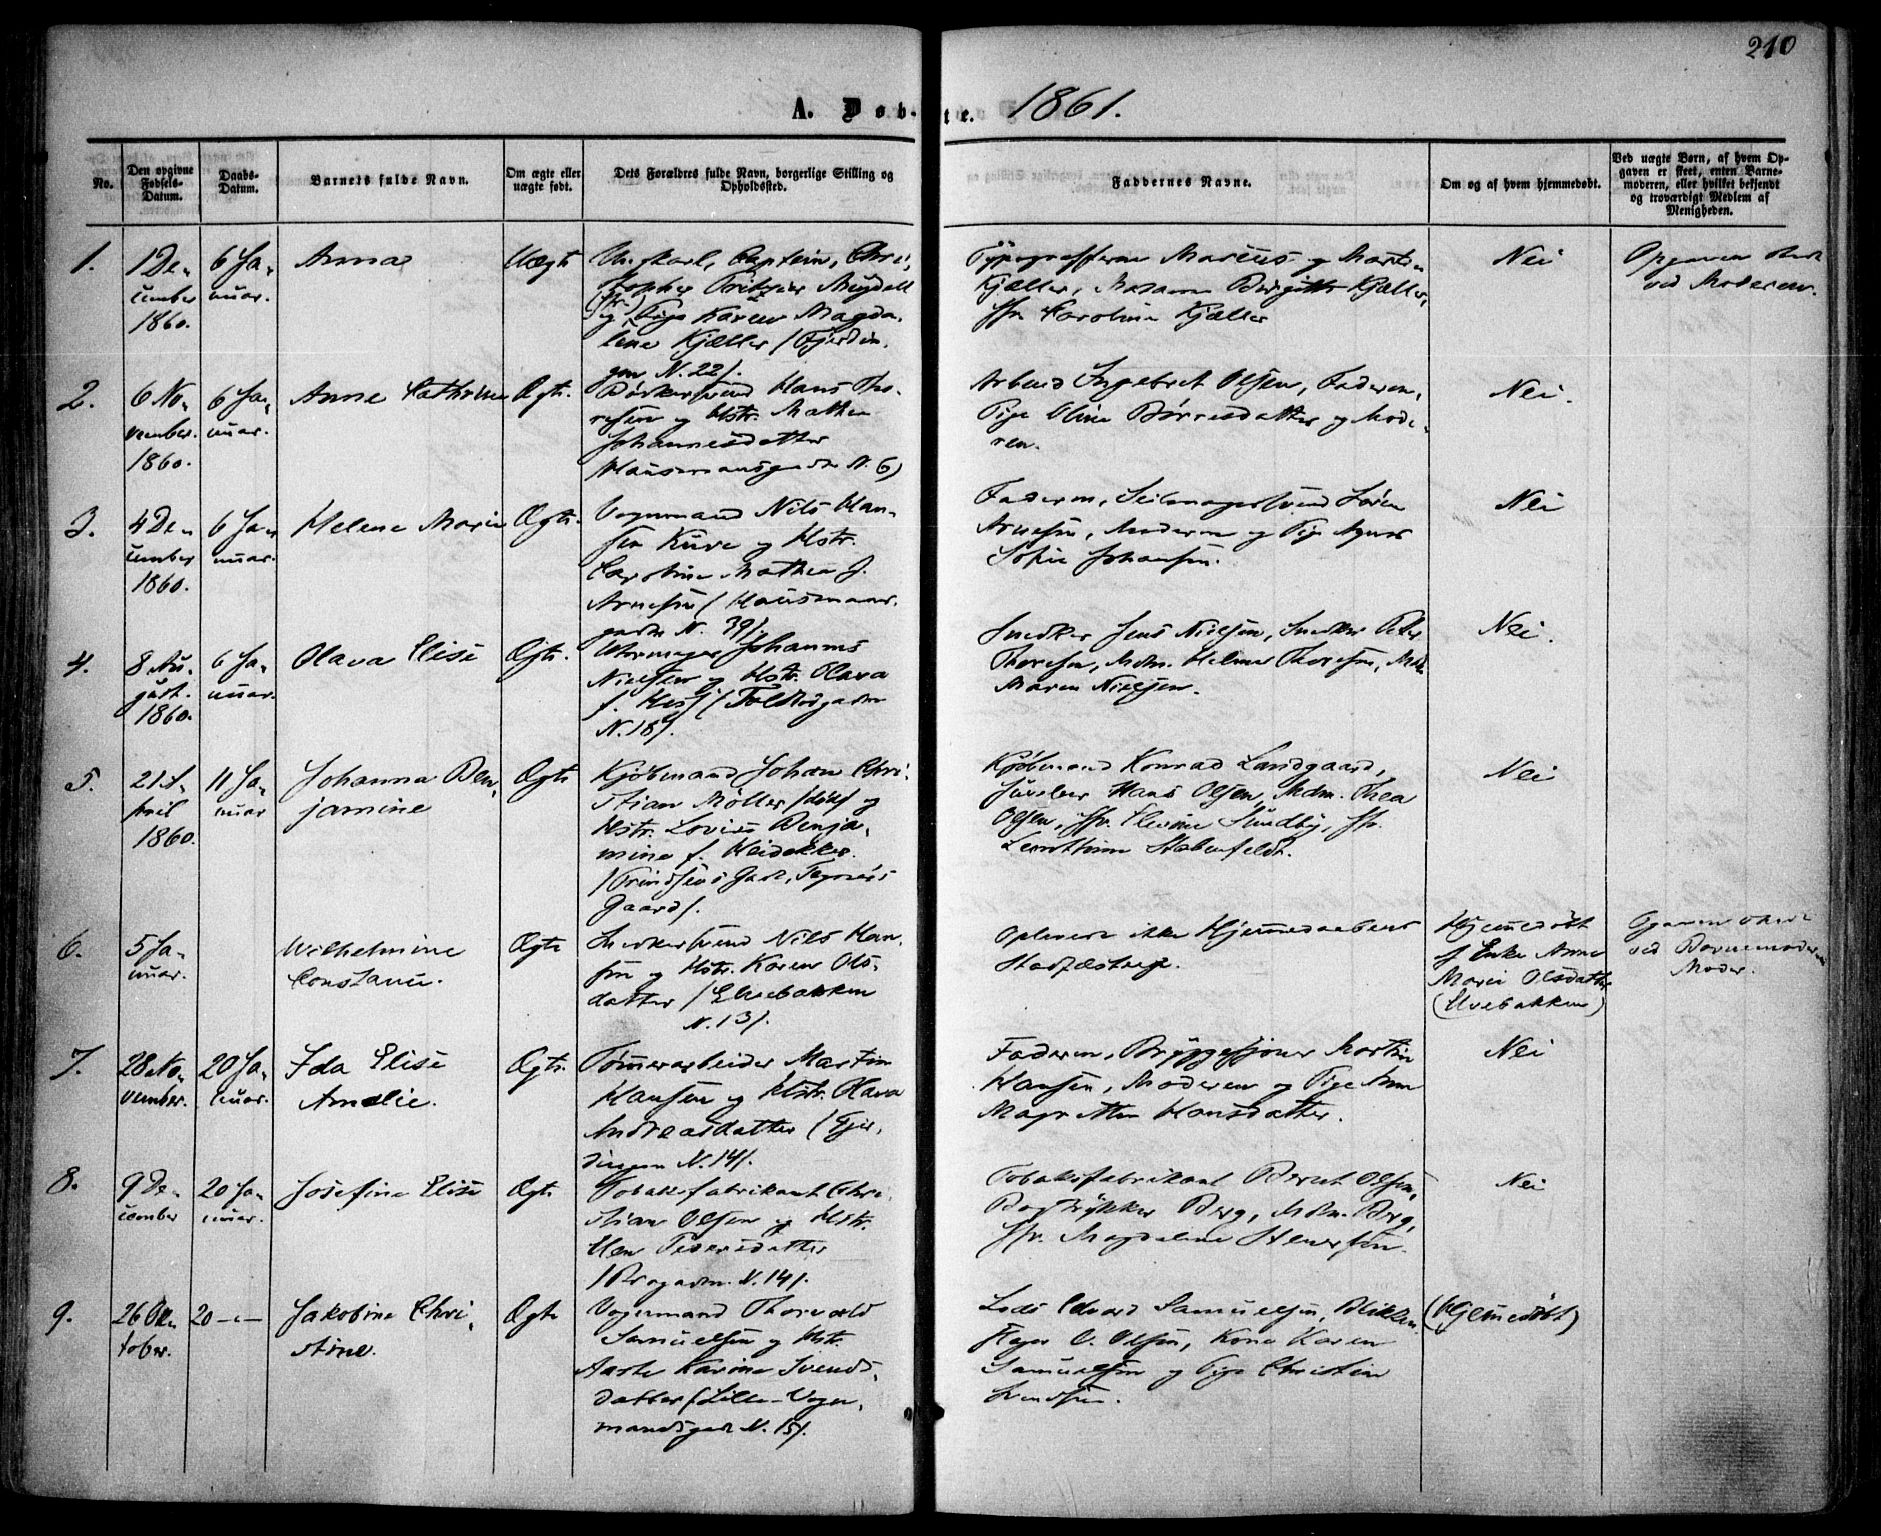 210
A. Døb-te. 1861.
No.
Den opgivne Fødsels-Datum.
Daabs-Datum.
Barnets fulde Navn.
Om ægte eller uægte født.
Dets Forældres fulde Navn, borgerlige Stilling og Opholdssted.
Faddernes Navne.
Om og af hvem hjemmedøbt.
Ved uægte Børn, af hvem Opgaven er skeet, enten Barnemoderen, eller hvilket bekjendt og troværdigt Medlem af Menigheden.
1.
1 De-
cember
1860.
6 Ja-
nuar.
Anna
Uægte
Ungkarl, Captein, Chri-
stopher
og Pige Karen Magda-
lene Kjæller / Fjerdin-
gen N. 22/.
Typograferne Marius og Martin
Kjæller, Madame Birgitte Kjæller,
Jfr. Caroline Kjæller
Nei
Opgaven skeet
ved Moderen.
2.
6 No-
vember.
1860.
6 Ja-
nuar.
Anne Cathrine
Ægte.
Bødkersvend Hans Tho-
resen og Hstr. Mathea
Johannesdatter
Hausmansgaden N. 6)
Arbeid Ingebret Olsen, Faderen,
Pige Oline Børresdatter og Mode-
ren.
Nei.
3.
4 De-
cember
1860.
6 Ja-
nuar.
Helene Marie
Ægte.
Vognmand Nils Han-
sen Kure og Hstr.
Caroline Mathea f.
Arnesen / Hausmans-
gaden N. 39/.
Faderen, Seilmagersvend Søren
Arnesen, Moderen og Pige Agnes
Sofie Johansen.
Nei
4.
8 Au-
gust.
1860.
6 Ja-
nuar.
Olava Elise
Ægte.
Uhrmager Johannes
Nielsen og Hstr. Olava
f. / Toldbodgaden
N. 18/.
Snedker Jens Nielsen, Snedker Peter
Thoresen, Mdm. Helene Thoresen, Mdm
Maren Nielsen.
Nei.
5.
21 A-
pril
1860.
11 Ja-
nuar
Johanna Ben-
jamine
Ægte
Kjøbmand Johan Chri-
stian Møller /død/ og
Hstr. Lovise Benja-
mine f. Heidekker.
Gaard/.
Kjøbmand Konrad Langaard,
Juveleer Hans Olsen, Mdm. Thea
Olsen, Jfr. Elevine Sundby, Jfr.
Nei
6.
5 Ja-
nuar.
Wilhelmine
Constance.
Ægte
Snedkersvend Nils Han-
sen og Hstr. Karen Ols-
datter / Elvebakken
N. 13/.
Oplevede ikke Hjemmedaabens
Stadfæstelse.
Hjemmedøbt
af Enke Anne
Marie Olsdatter
(Elvebakken)
Opgaven skeet
ved Barnemoderens
Moder.
7.
28 No-
vember.
20 Ja-
nuar.
Ida Elise
Amalie.
Ægte.
Tømmerarbeider Martin
Hansen og Hstr. Olava
Andreasdatter / Fjer-
dingen N. 14/.
Faderen, Bryggesjouer Martin
Hansen, Moderen og Pige Anne
Magrethe Hansdatter.
Nei
8.
9 De-
cember
20 Ja-
nuar.
Josefine Elise
Ægte.
Tobaksfabrikant Chri-
stian Olsen og Hstr.
Elen Pedersdatter
/ Brogaden. N. 14/.
Tobaksfabrikant Bernt Olsen,
Bogtrykker Berg, Mdm. Berg,
Jfr. Magdalene
Nei
9.
26 Ok-
tober.
20 -"-
Jakobine Chri-
stine.
Ægte
Vognmand Thorvald
Samuelsen og Hstr.
Aaste Karine Svends-
datter / Lille Vogn-
mandsgade N. 15/.
Lods Edvard Samuelsen, Blikken-
slager O. Olsen, Kone Karen
Samuelsen og Pige Christine
Svendsen.
(Hjemmedøbt)